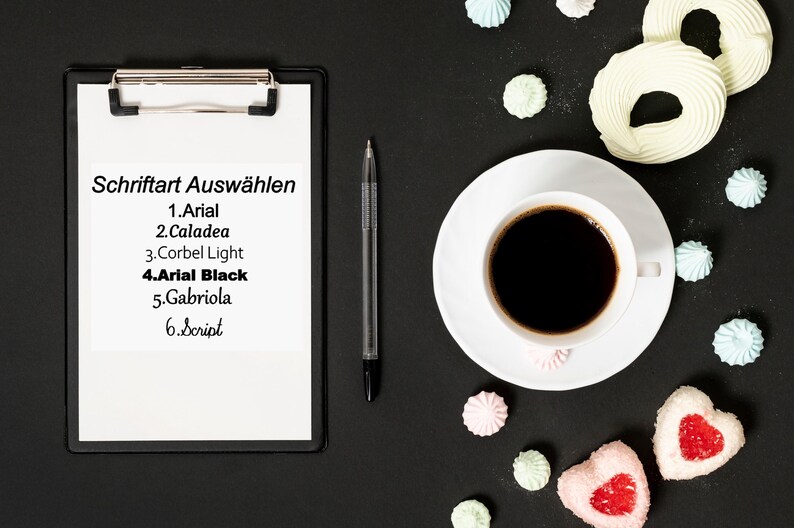 Schriftart Auswählen
1.Arial
2.Caladea
3.Corbel Light
4.Arial Black
5.Gabriola
6.Script